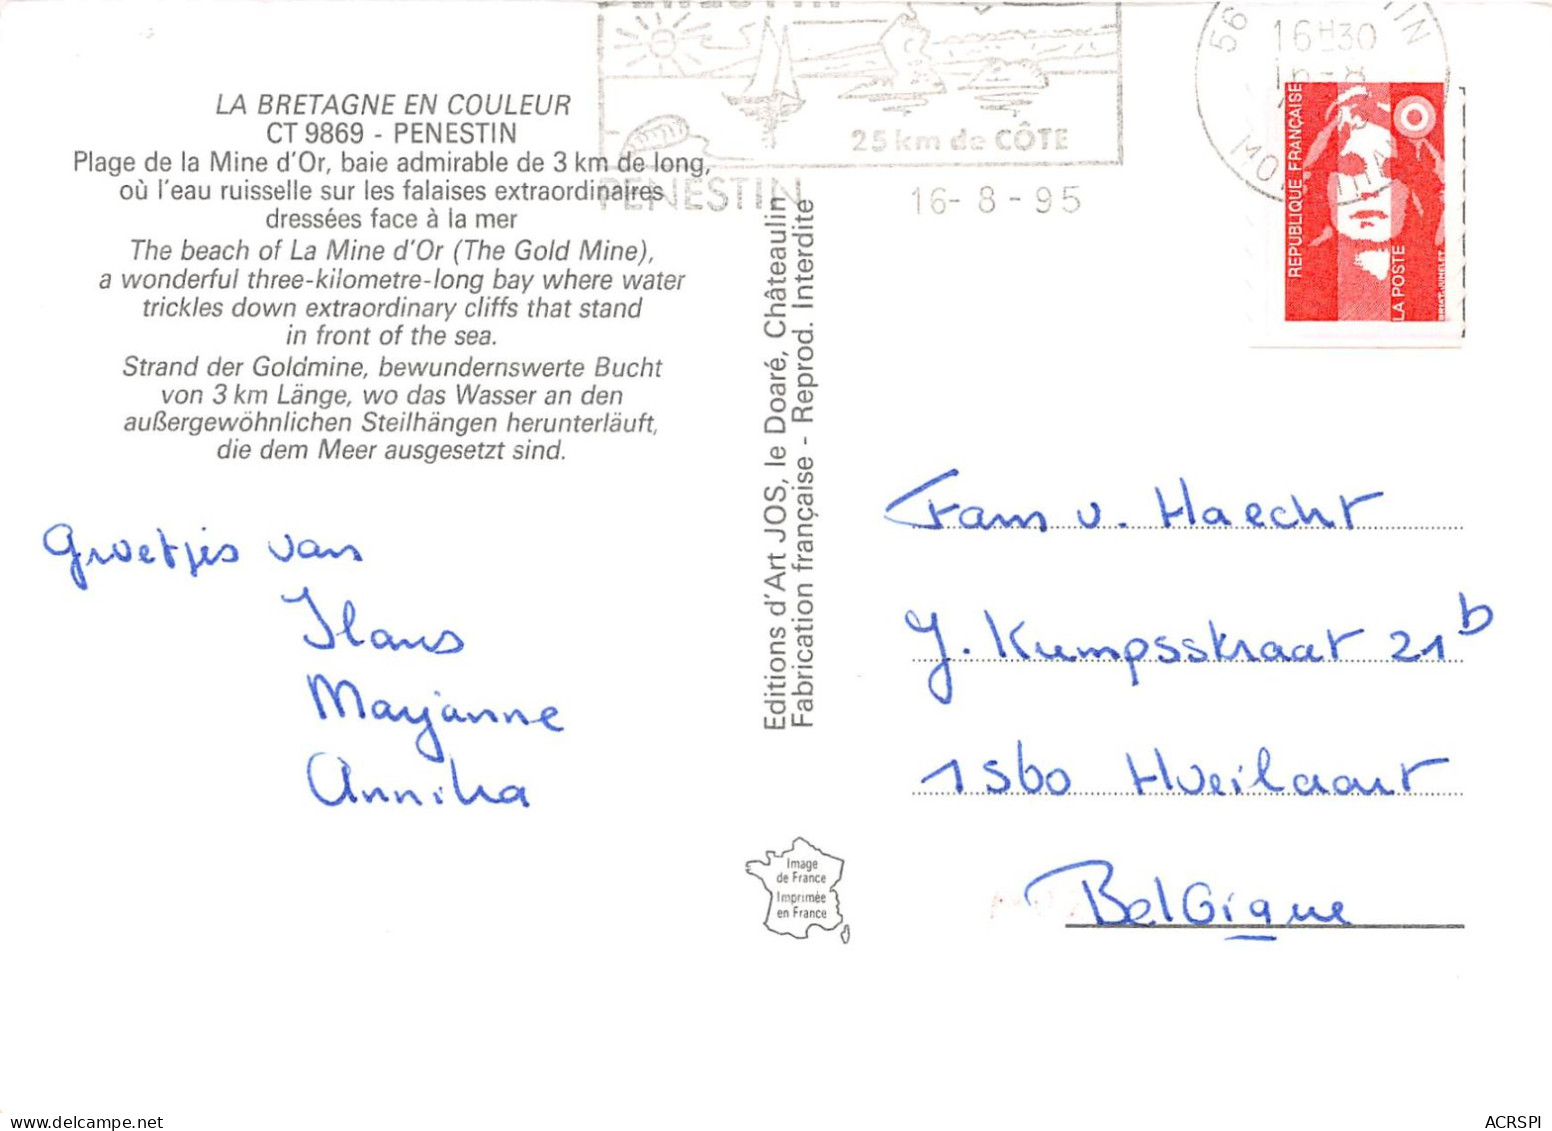 LA BRETAGNE EN COULEUR
CT 9869 - PENESTIN
Plage de la Mine d'Or, baie admirable de 3 km de long,
où l'eau ruisselle sur les falaises extraordinaires
dressées face à la mer
The beach of La Mine d'Or (The Gold Mine),
a wonderful three-kilometre-long bay where water
trickles down extraordinary cliffs that stand
in front of the sea.
Strand der Goldmine, bewundernswerte Bucht
von 3 km Länge, wo das Wasser an den
außergewöhnlichen Steilhängen herunterläuft,
die dem Meer ausgesetzt sind.
25 km de CÔTE
PENESTIN
16-8-95
56
16H30
16-8
REPUBLIQUE FRANÇAISE
LA POSTE
Editions d'Art JOS, le Doaré, Châteaulin
Fabrication française - Reprod. Interdite
Groetjes van
Hans
Marjanne
Annika
Fam v. Haecht
J. Kumpsstraat 21b
1560 Hoeilaart
Belgique
Image
de France
Imprimée
en France
ACRSPI